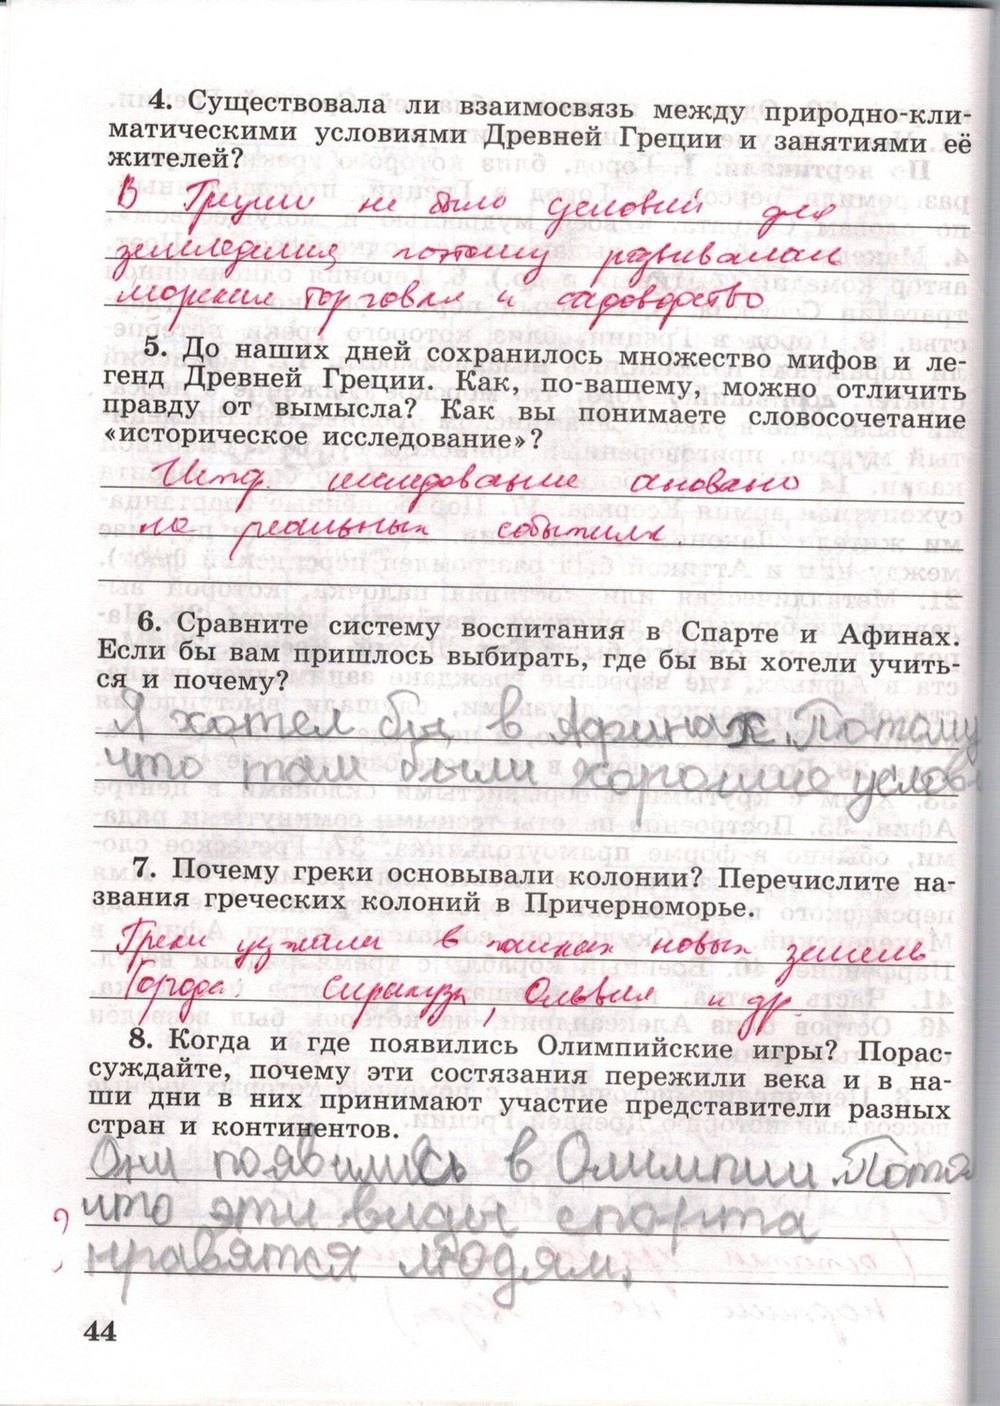 4. Существовала ли взаимосвязь между природно-кли-
матическими условиями Древней Греции и занятиями её
жителей?
В Греции не было условий для
земледелия поэтому развивали
морская торговля и садоводство
5. До наших дней сохранилось множество мифов и ле-
генд Древней Греции. Как, по-вашему, можно отличить
правду от вымысла? Как вы понимаете словосочетание
«историческое исследование»?
исследование основано
на реальных событиях.
6. Сравните систему воспитания в Спарте и Афинах.
Если бы вам пришлось выбирать, где бы вы хотели учить-
ся и почему?
Я хотел бы в Афинах. Потому
что там были хорошие услов
7. Почему греки основывали колонии? Перечислите на-
звания греческих колоний в Причерноморье.
Греки уезжали в поисках новых земель
Города: Сиракузы, Ольвия и др.
8. Когда и где появились Олимпийские игры? Порас-
суждайте, почему эти состязания пережили века и в на-
ши дни в них принимают участие представители разных
стран и континентов.
Они появились в Олимпии. Пото
что эти виды спорта
нравятся людям.
44